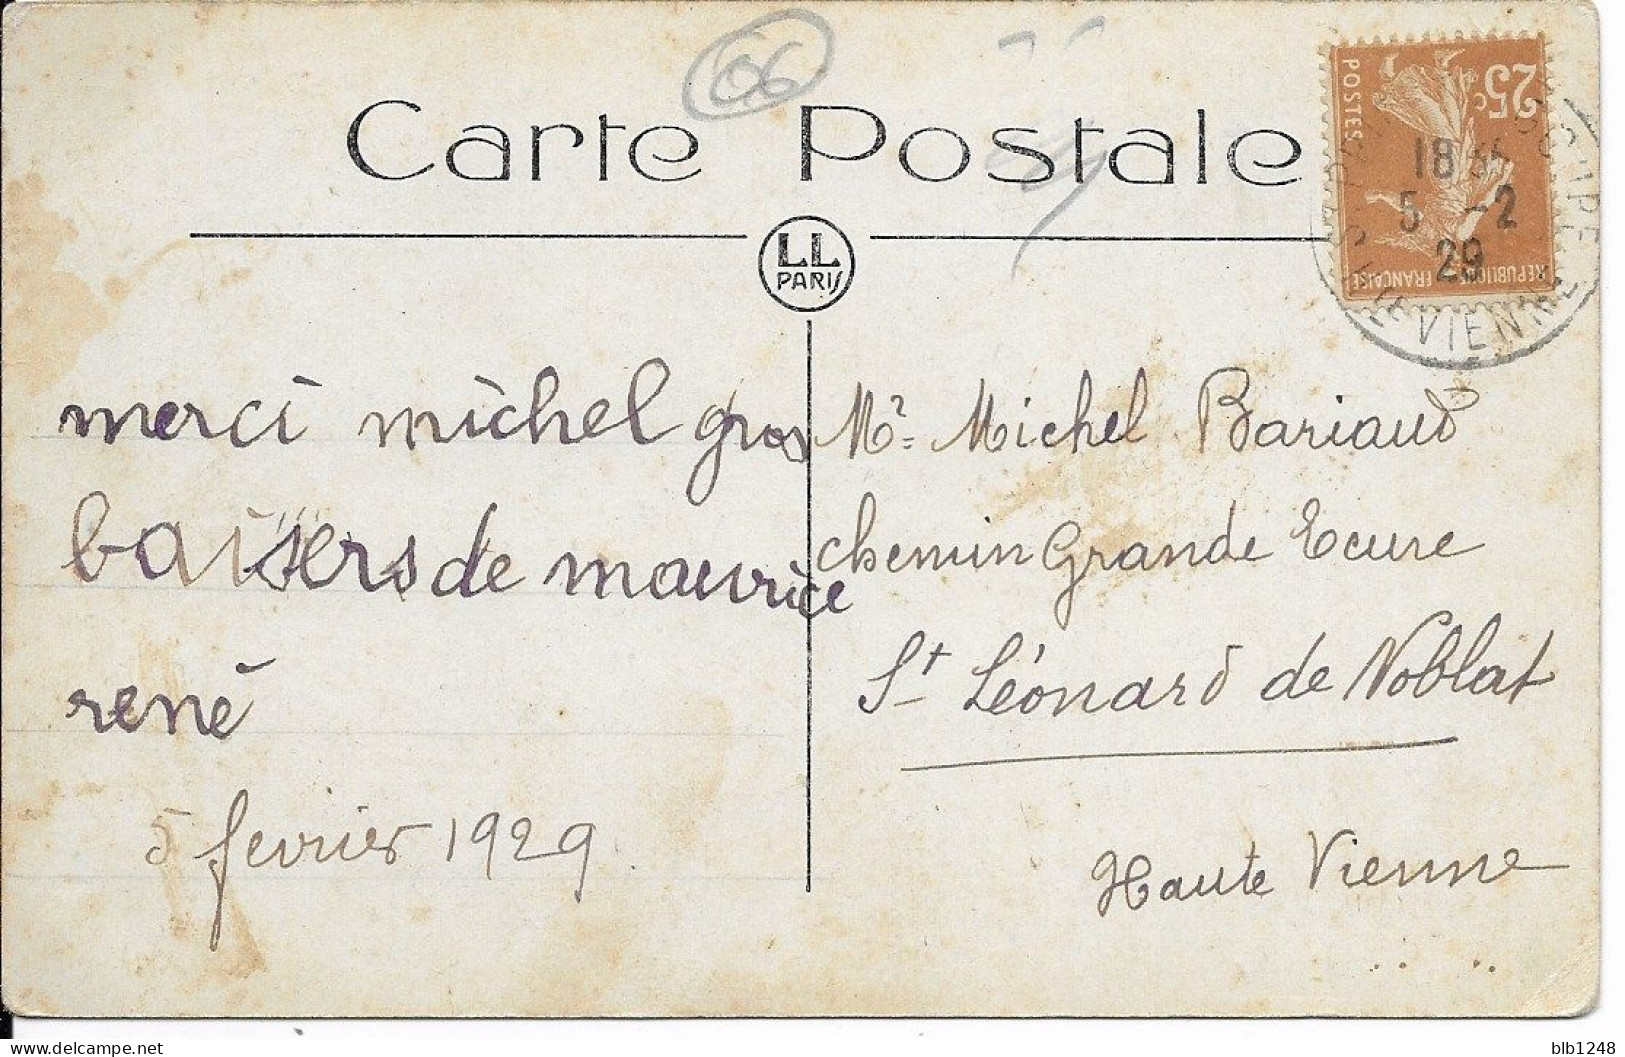 06
Carte Postale
LL
PARIS
25c
POSTES
REPUBLIQUE FRANÇAISE
18
5 -2
29
VIENNE
merci michel gros
baisers de maurice
rené
5 fevrier 1929
Mr Michel Bariaud
chemin Grande Ecure
St Léonard de Noblat
Haute Vienne
delcampe.net
blb1248